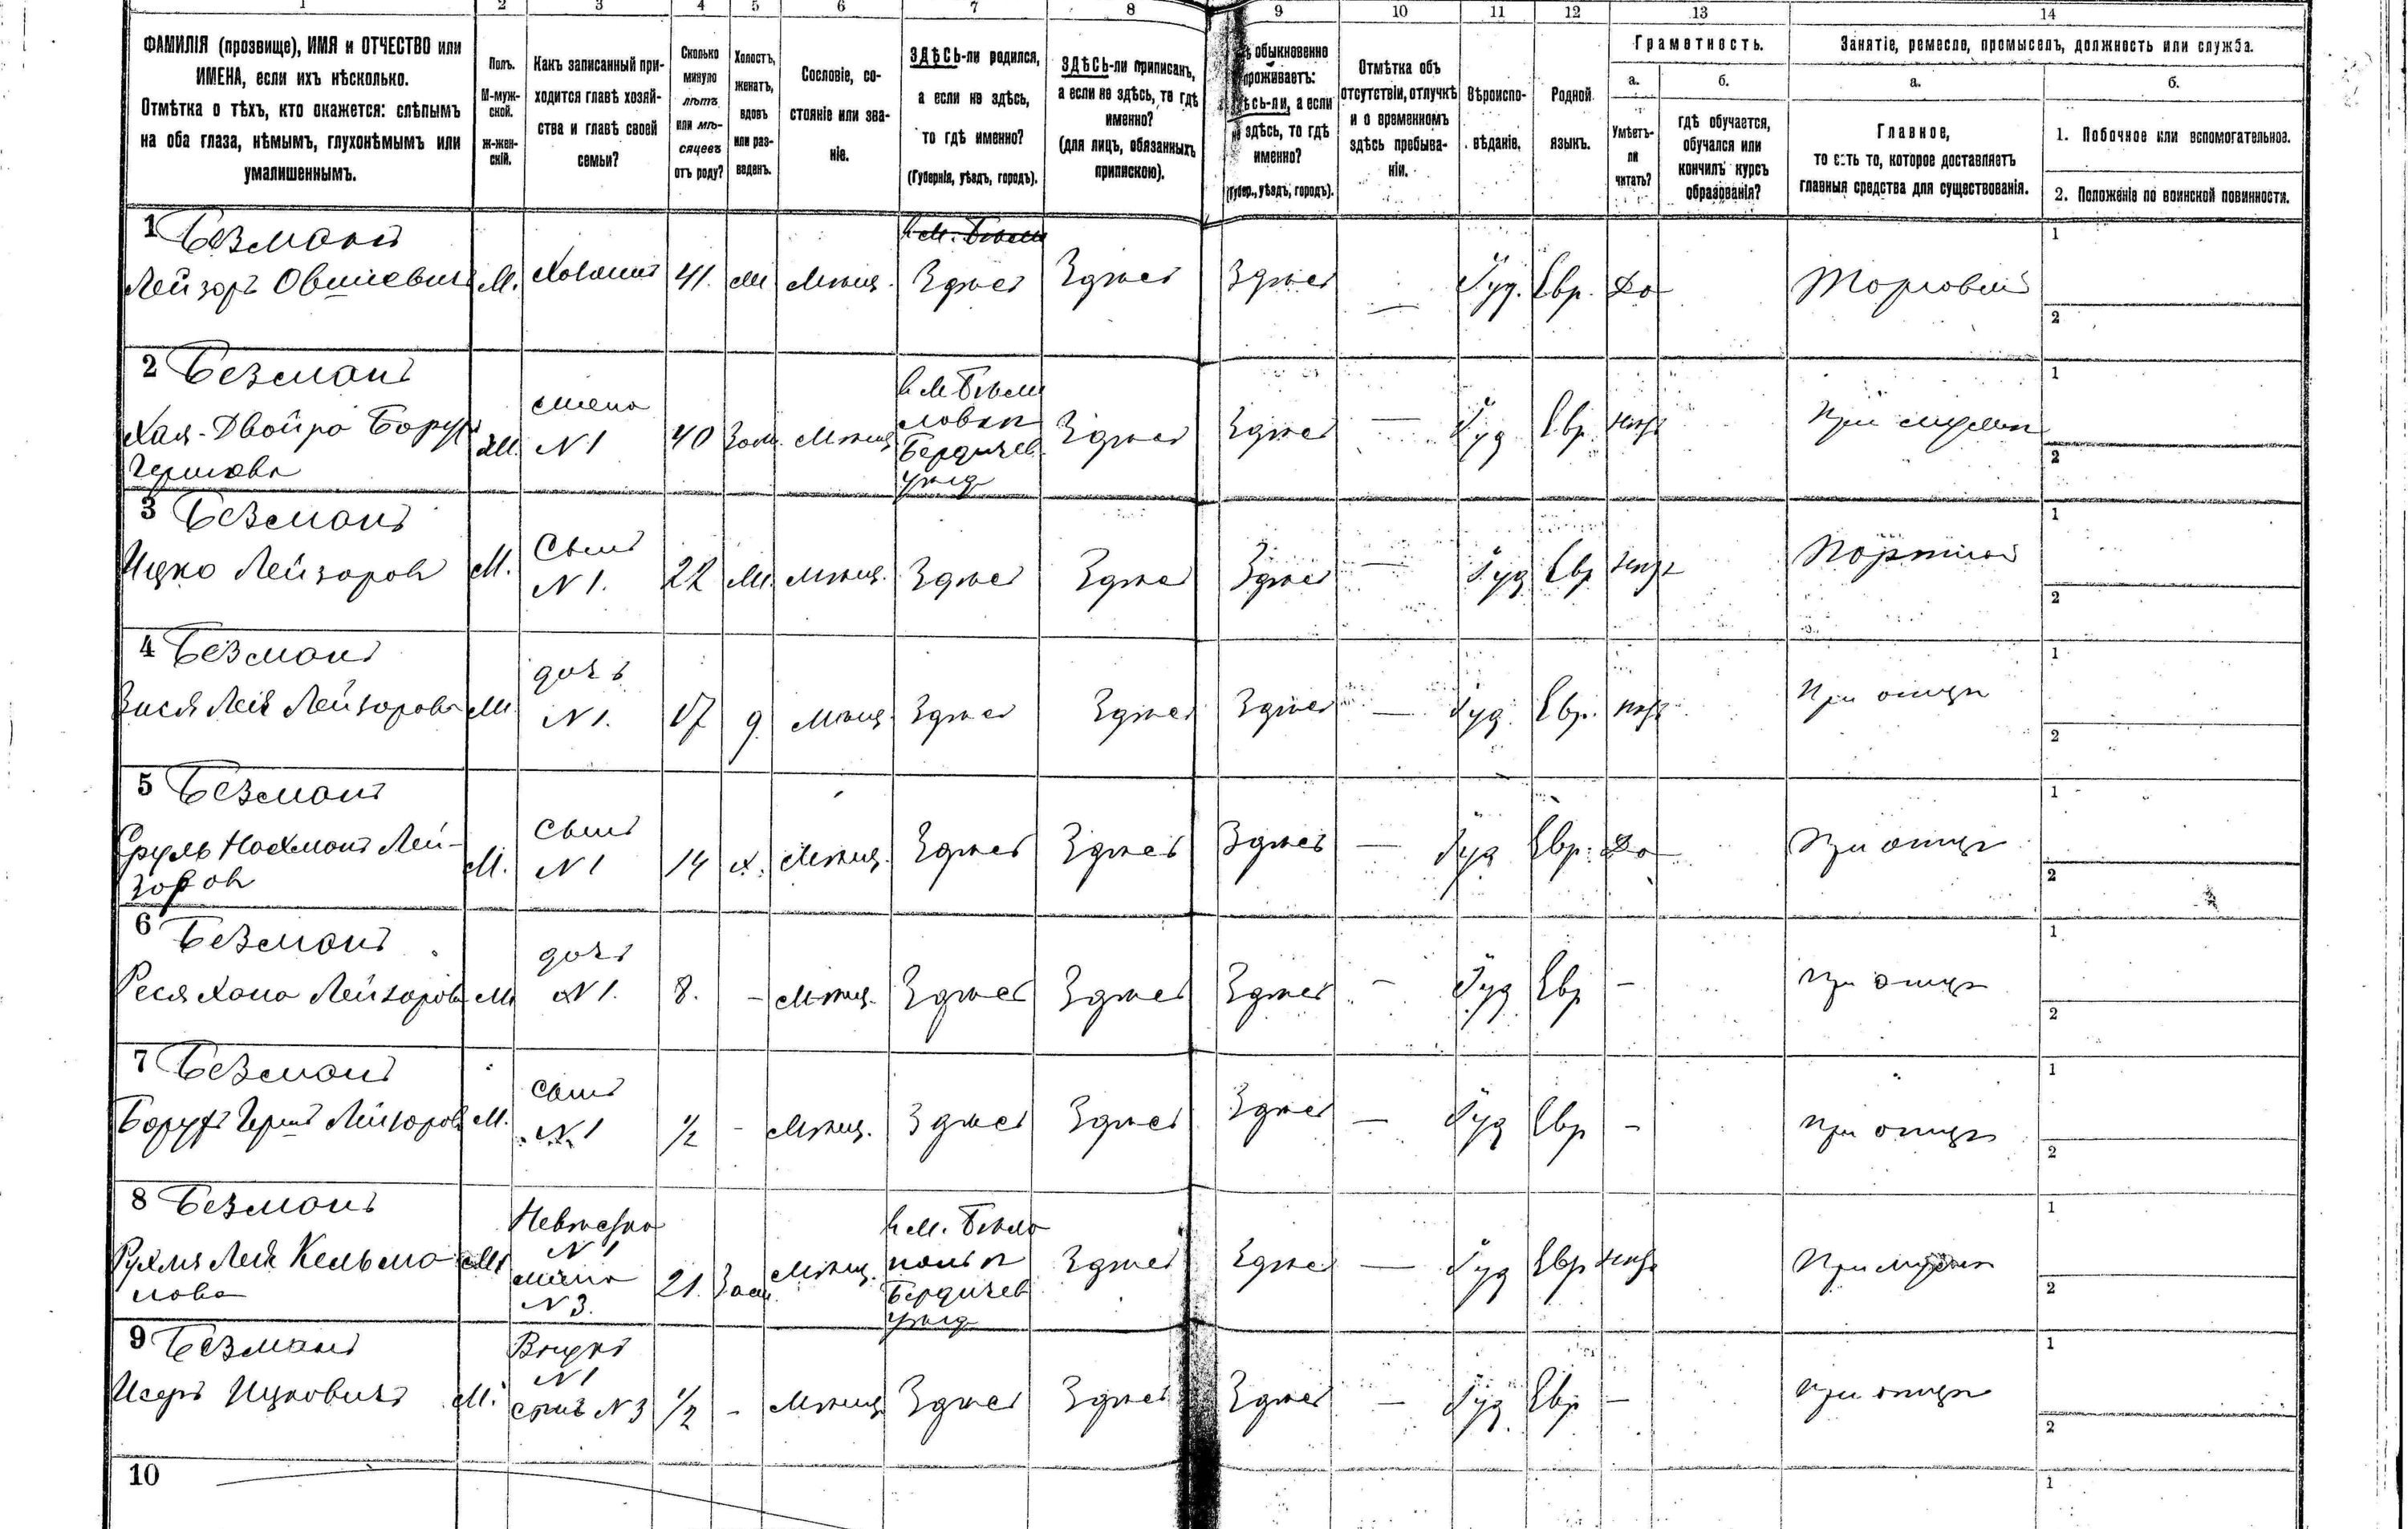 1 2 3 4 5 6 7 8 9 10 11 12 13 14
ФАМИЛІЯ (прозвище), ИМЯ и ОТЧЕСТВО или
ИМЕНА, если ихъ нѣсколько.
Отмѣтка о тѣхъ, кто окажется: слѣпымъ
на оба глаза, нѣмымъ, глухонѣмымъ или
умалишеннымъ.
Полъ.
М-муж-
ской.
ж-жен-
скій.
Какъ записанный при-
ходится главѣ хозяй-
ства и главѣ своей
семьи?
Сколько
минуло
лѣтъ
или мѣ-
сяцевъ
отъ роду?
Холостъ,
женатъ,
вдовъ
или раз-
веденъ.
Сословіе, со-
стояніе или зва-
ніе.
ЗДѢСЬ-ли родился,
а если не здѣсь,
то гдѣ именно?
(Губернія, уѣздъ, городъ).
ЗДѢСЬ-ли приписанъ,
а если не здѣсь, то гдѣ
именно?
(для лицъ, обязанныхъ
припискою).
обыкновенно
проживаетъ:
а если
здѣсь, то гдѣ
именно?
(Губер., уѣздъ, городъ).
Отмѣтка объ
отсутствіи, отлучкѣ
и о временномъ
здѣсь пребыва-
ніи.
Вѣроиспо-
вѣданіе.
Родной
языкъ.
Грамотность.
а.
Умѣетъ-
ли
читать?
б.
гдѣ обучается,
обучался или
кончилъ курсъ
образованія?
Занятіе, ремесло, промыселъ, должность или служба.
а.
Главное,
то есть то, которое доставляетъ
главныя средства для существованія.
б.
1. Побочное или вспомогательное.
2. Положеніе по воинской повинности.
1 Безманъ
Лейзоръ Овшіевичъ М. Хозяинъ 41. Ж Мѣщ. Здѣсь Здѣсь Здѣсь — Іуд. Евр. Да Торговый
1
2
2 Безманъ
Хая-Двойра Борух
Гершкова Ж. жена
№ 1 40 Зам. Мѣщ.
Бердичев.
уѣзд Здѣсь Здѣсь — Іуд. Евр. нѣтъ При мужѣ
1
2
3 Безманъ
Ицко Лейзоров М. Сынъ
№ 1. 22 Ж. Мѣщ. Здѣсь Здѣсь Здѣсь — Іуд Евр нѣтъ Портной
1
2
4 Безманъ
Зися Лея Лейзорова Ж. дочь
№ 1. 17 д. Мѣщ. Здѣсь Здѣсь Здѣсь — Іуд. Евр. нѣтъ При отцѣ
1
2
5 Безманъ
Сруль Нахманъ Лей-
зоров М. Сынъ
№ 1 14 х. Мѣщ. Здѣсь Здѣсь Здѣсь — Іуд Евр. Да При отцѣ
1
2
6 Безманъ
Реся Хана Лейзорова Ж дочь
№ 1. 8. — Мѣщ. Здѣсь Здѣсь Здѣсь — Іуд Евр — При отцѣ
1
2
7 Безманъ
Борухъ Гершъ Лейзоров М. Сынъ
№ 1 1/2 - Мѣщ. Здѣсь Здѣсь Здѣсь — Іуд Евр - При отцѣ
1
2
8 Безманъ
Рухля Лея Кельма
нова Ж Невѣстка
№ 1
жена
№ 3. 21. Зам. Мѣщ. в м. Бѣло
польѣ
Бердичев
уѣзд Здѣсь Здѣсь — Іуд Евр нѣтъ При мужѣ
1
2
9 Безманъ
Ицковичъ М. Внукъ
№ 1
сынъ № 3 1/2 - Мѣщ Здѣсь Здѣсь Здѣсь — Іуд. Евр — При отцѣ
1
2
10
1